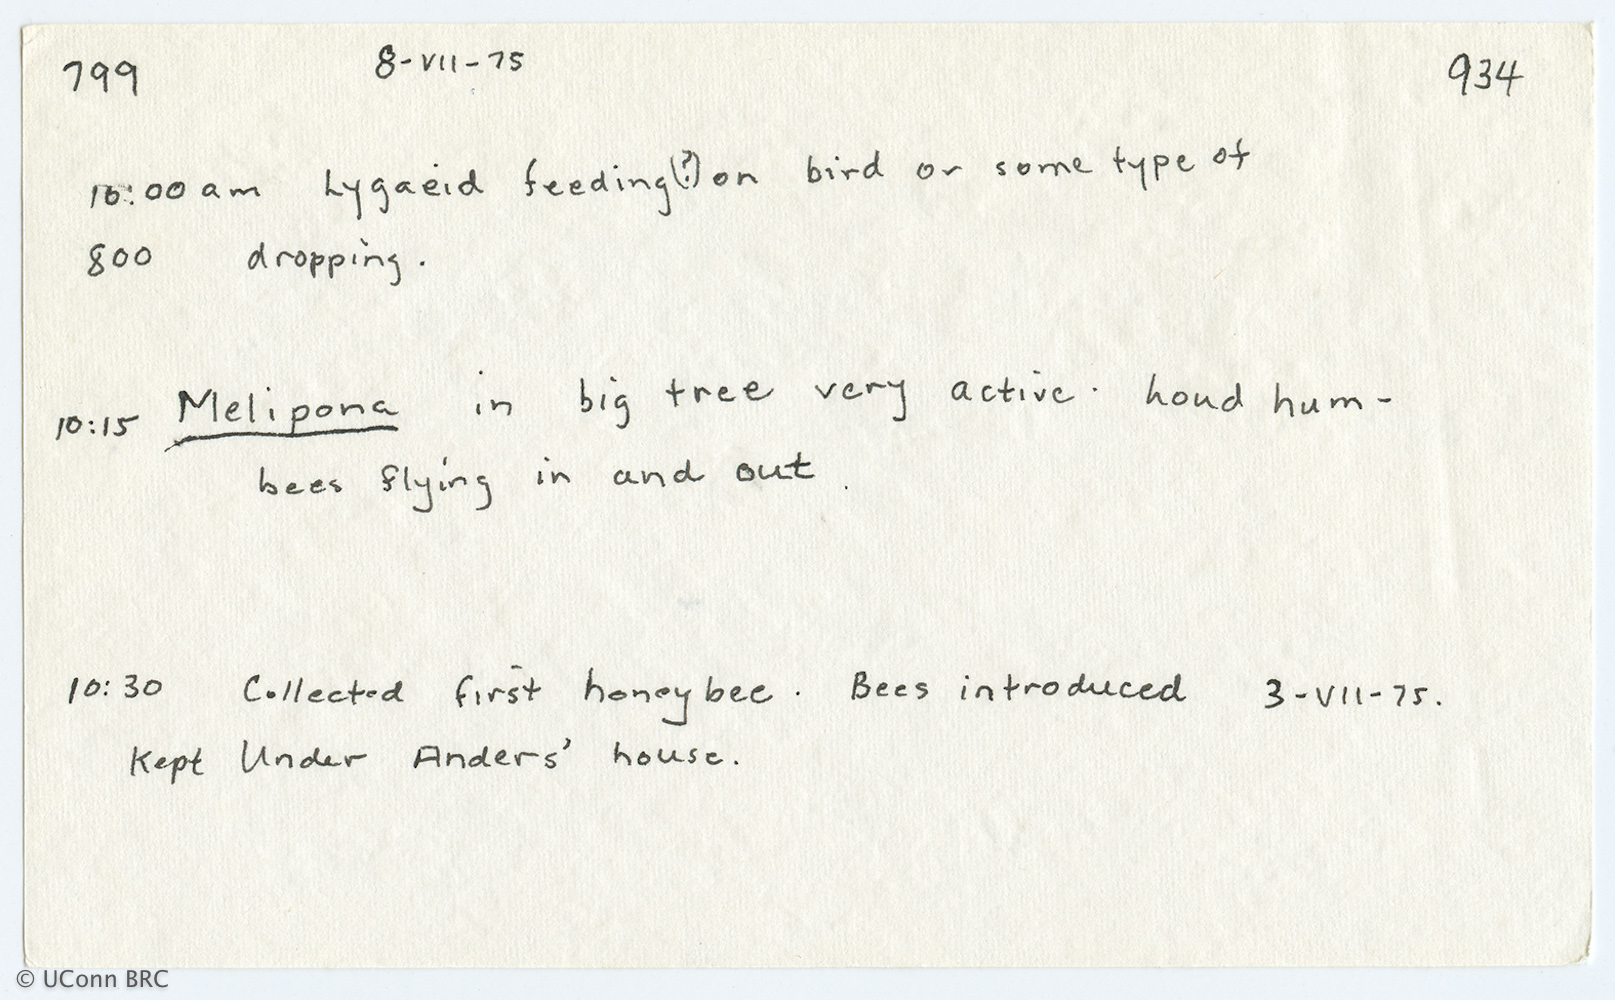 799 8-VII-75 934
10:00 am Lygaeid feeding(?) on bird or some type of
800 dropping.
10:15 Melipona in big tree very active. Loud hum-
bees flying in and out.
10:30 Collected first honeybee. Bees introduced 3-VII-75.
Kept Under Anders' house.
© UConn BRC